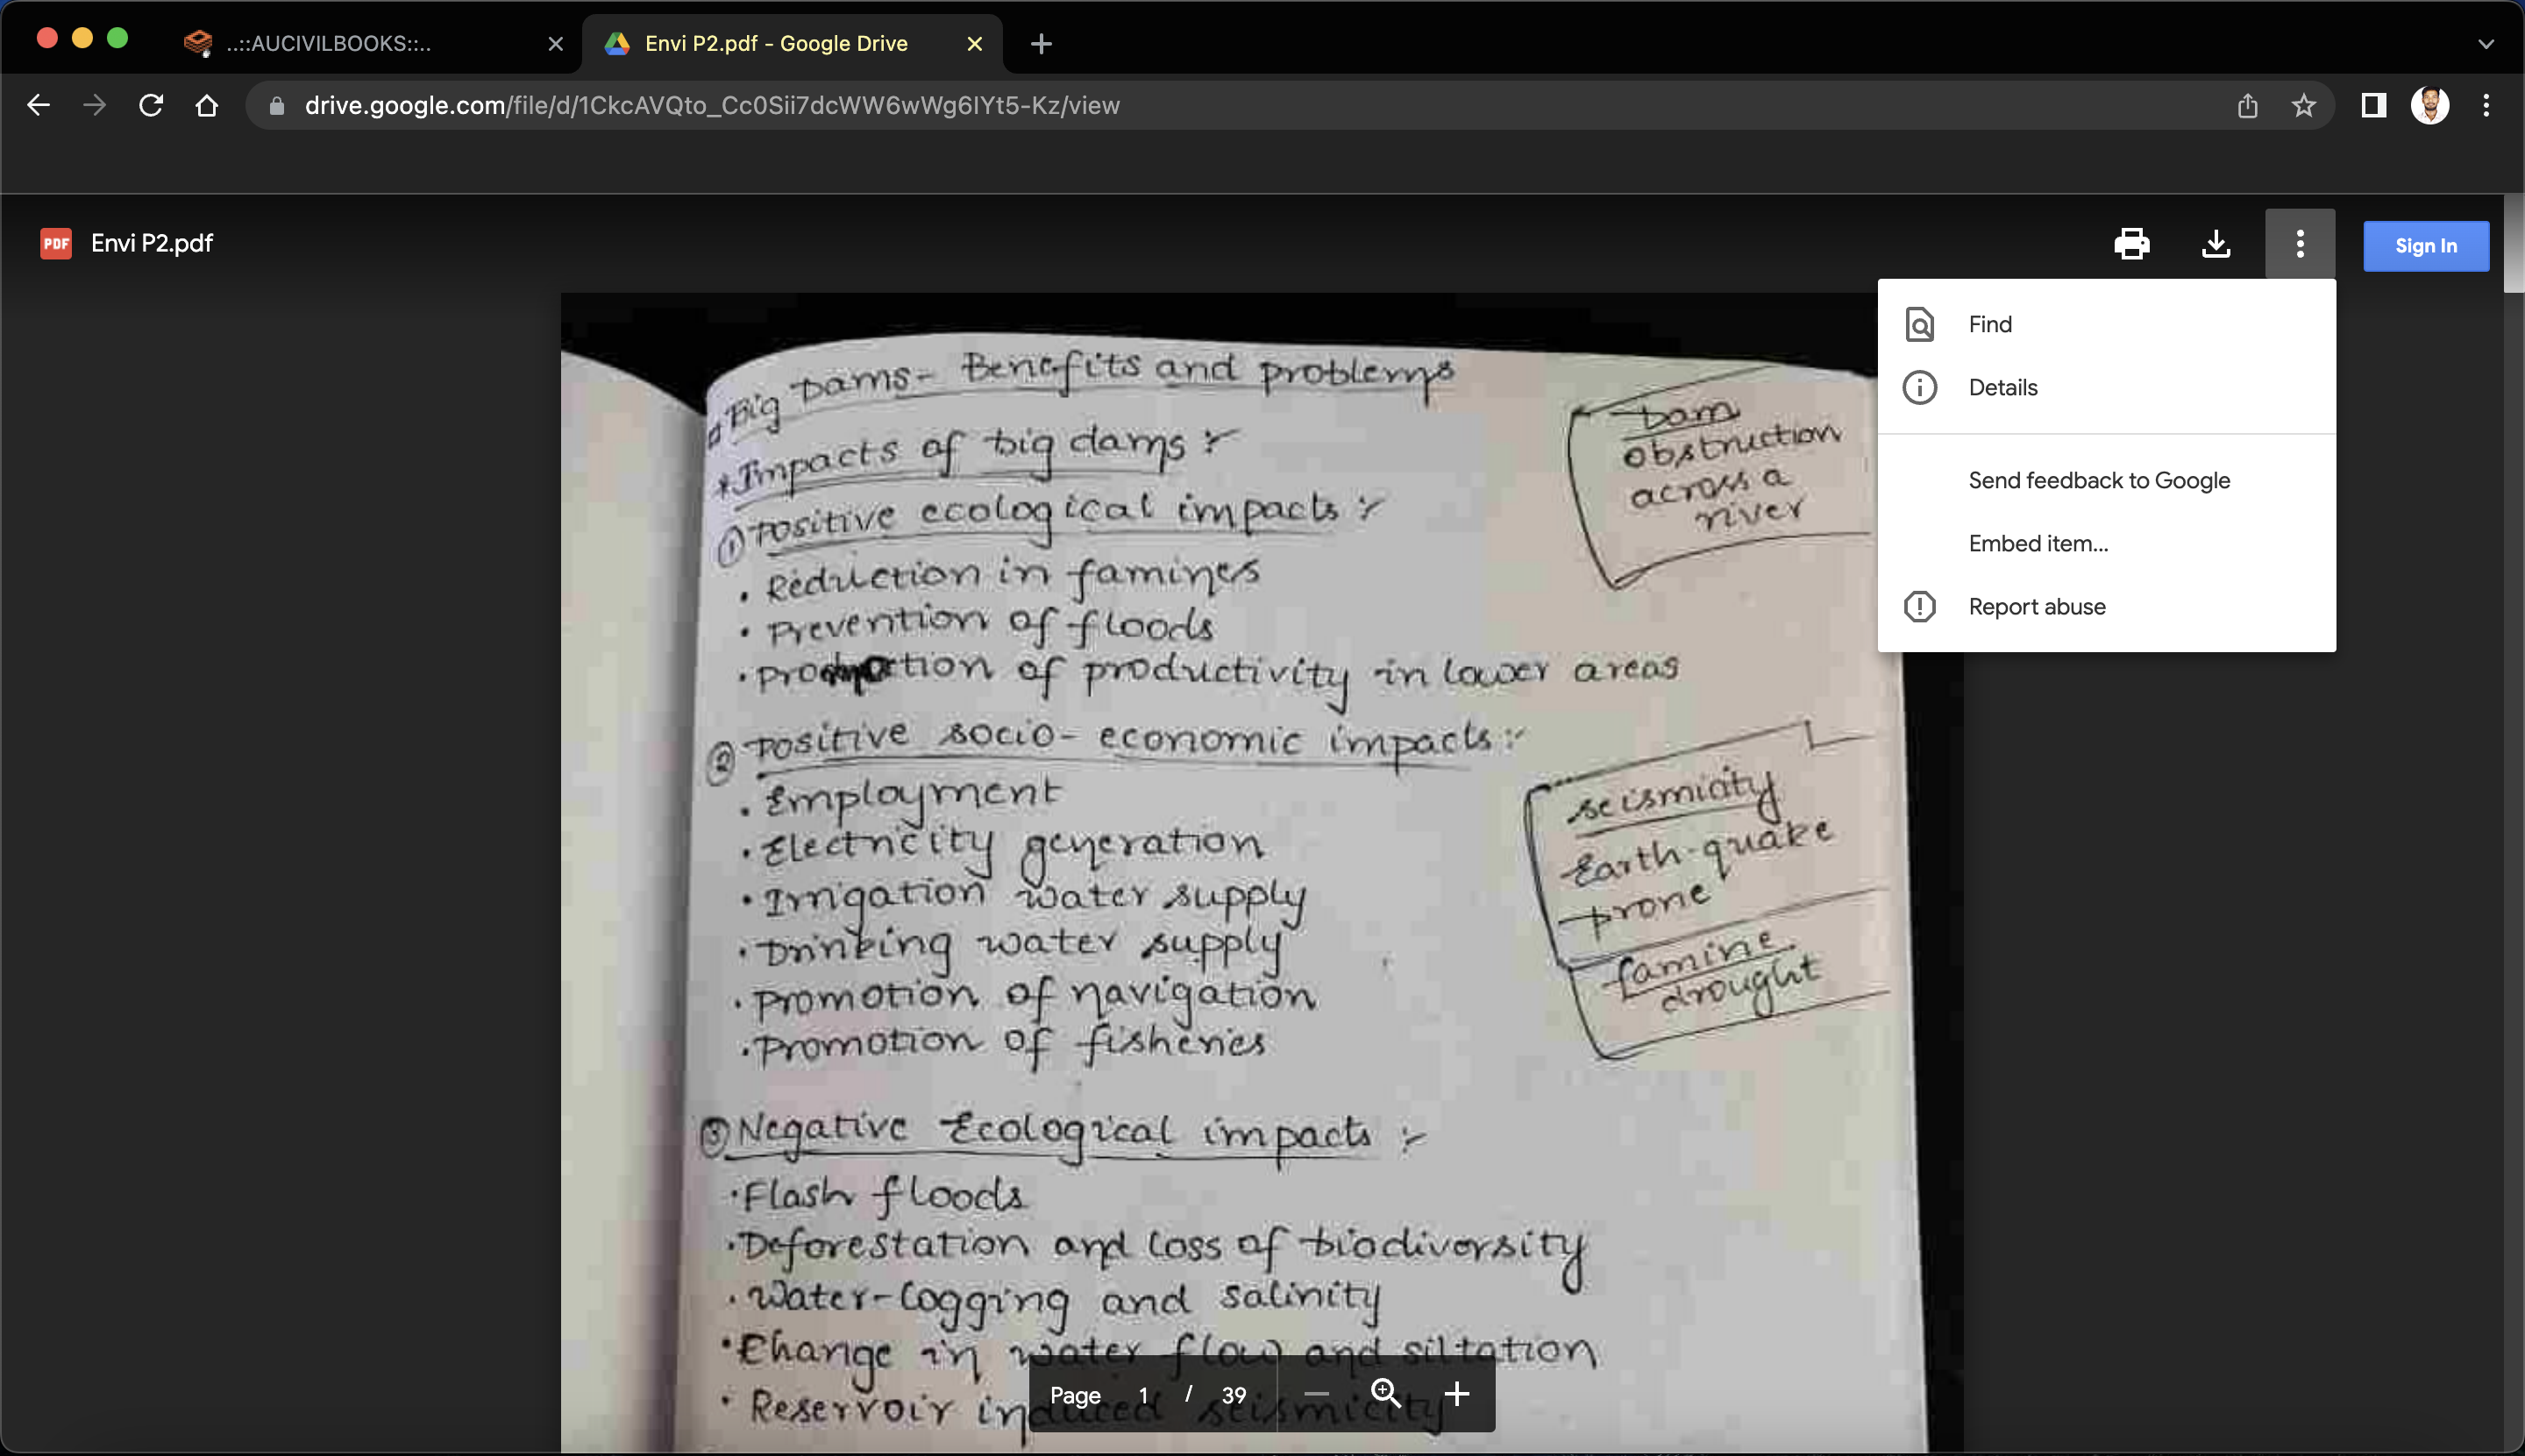 ..::AUCIVILBOOKS::..
Envi P2.pdf - Google Drive
drive.google.com/file/d/1CkcAVQto_Cc0Sii7dcWW6wWg6IYt5-Kz/view
PDF Envi P2.pdf
Sign In
Find
Details
Send feedback to Google
Embed item...
Report abuse
Big Dams- Benefits and problems
*Impacts of big dams :-
① Positive ecological impacts :-
• Reduction in famines
• Prevention of floods
• Promotion of productivity in lower areas
② Positive socio-economic impacts :-
• Employment
• Electricity generation
• Irrigation water supply
• Drinking water supply
• Promotion of navigation
• Promotion of fisheries
③ Negative Ecological impacts :-
• Flash floods
• Deforestation and loss of biodiversity
• Water-logging and salinity
• Change in water flow and siltation
• Reservoir induced seismicity
Dam
obstruction
across a
river
seismicity
Earth-quake
prone
famine
drought
Page 1 / 39